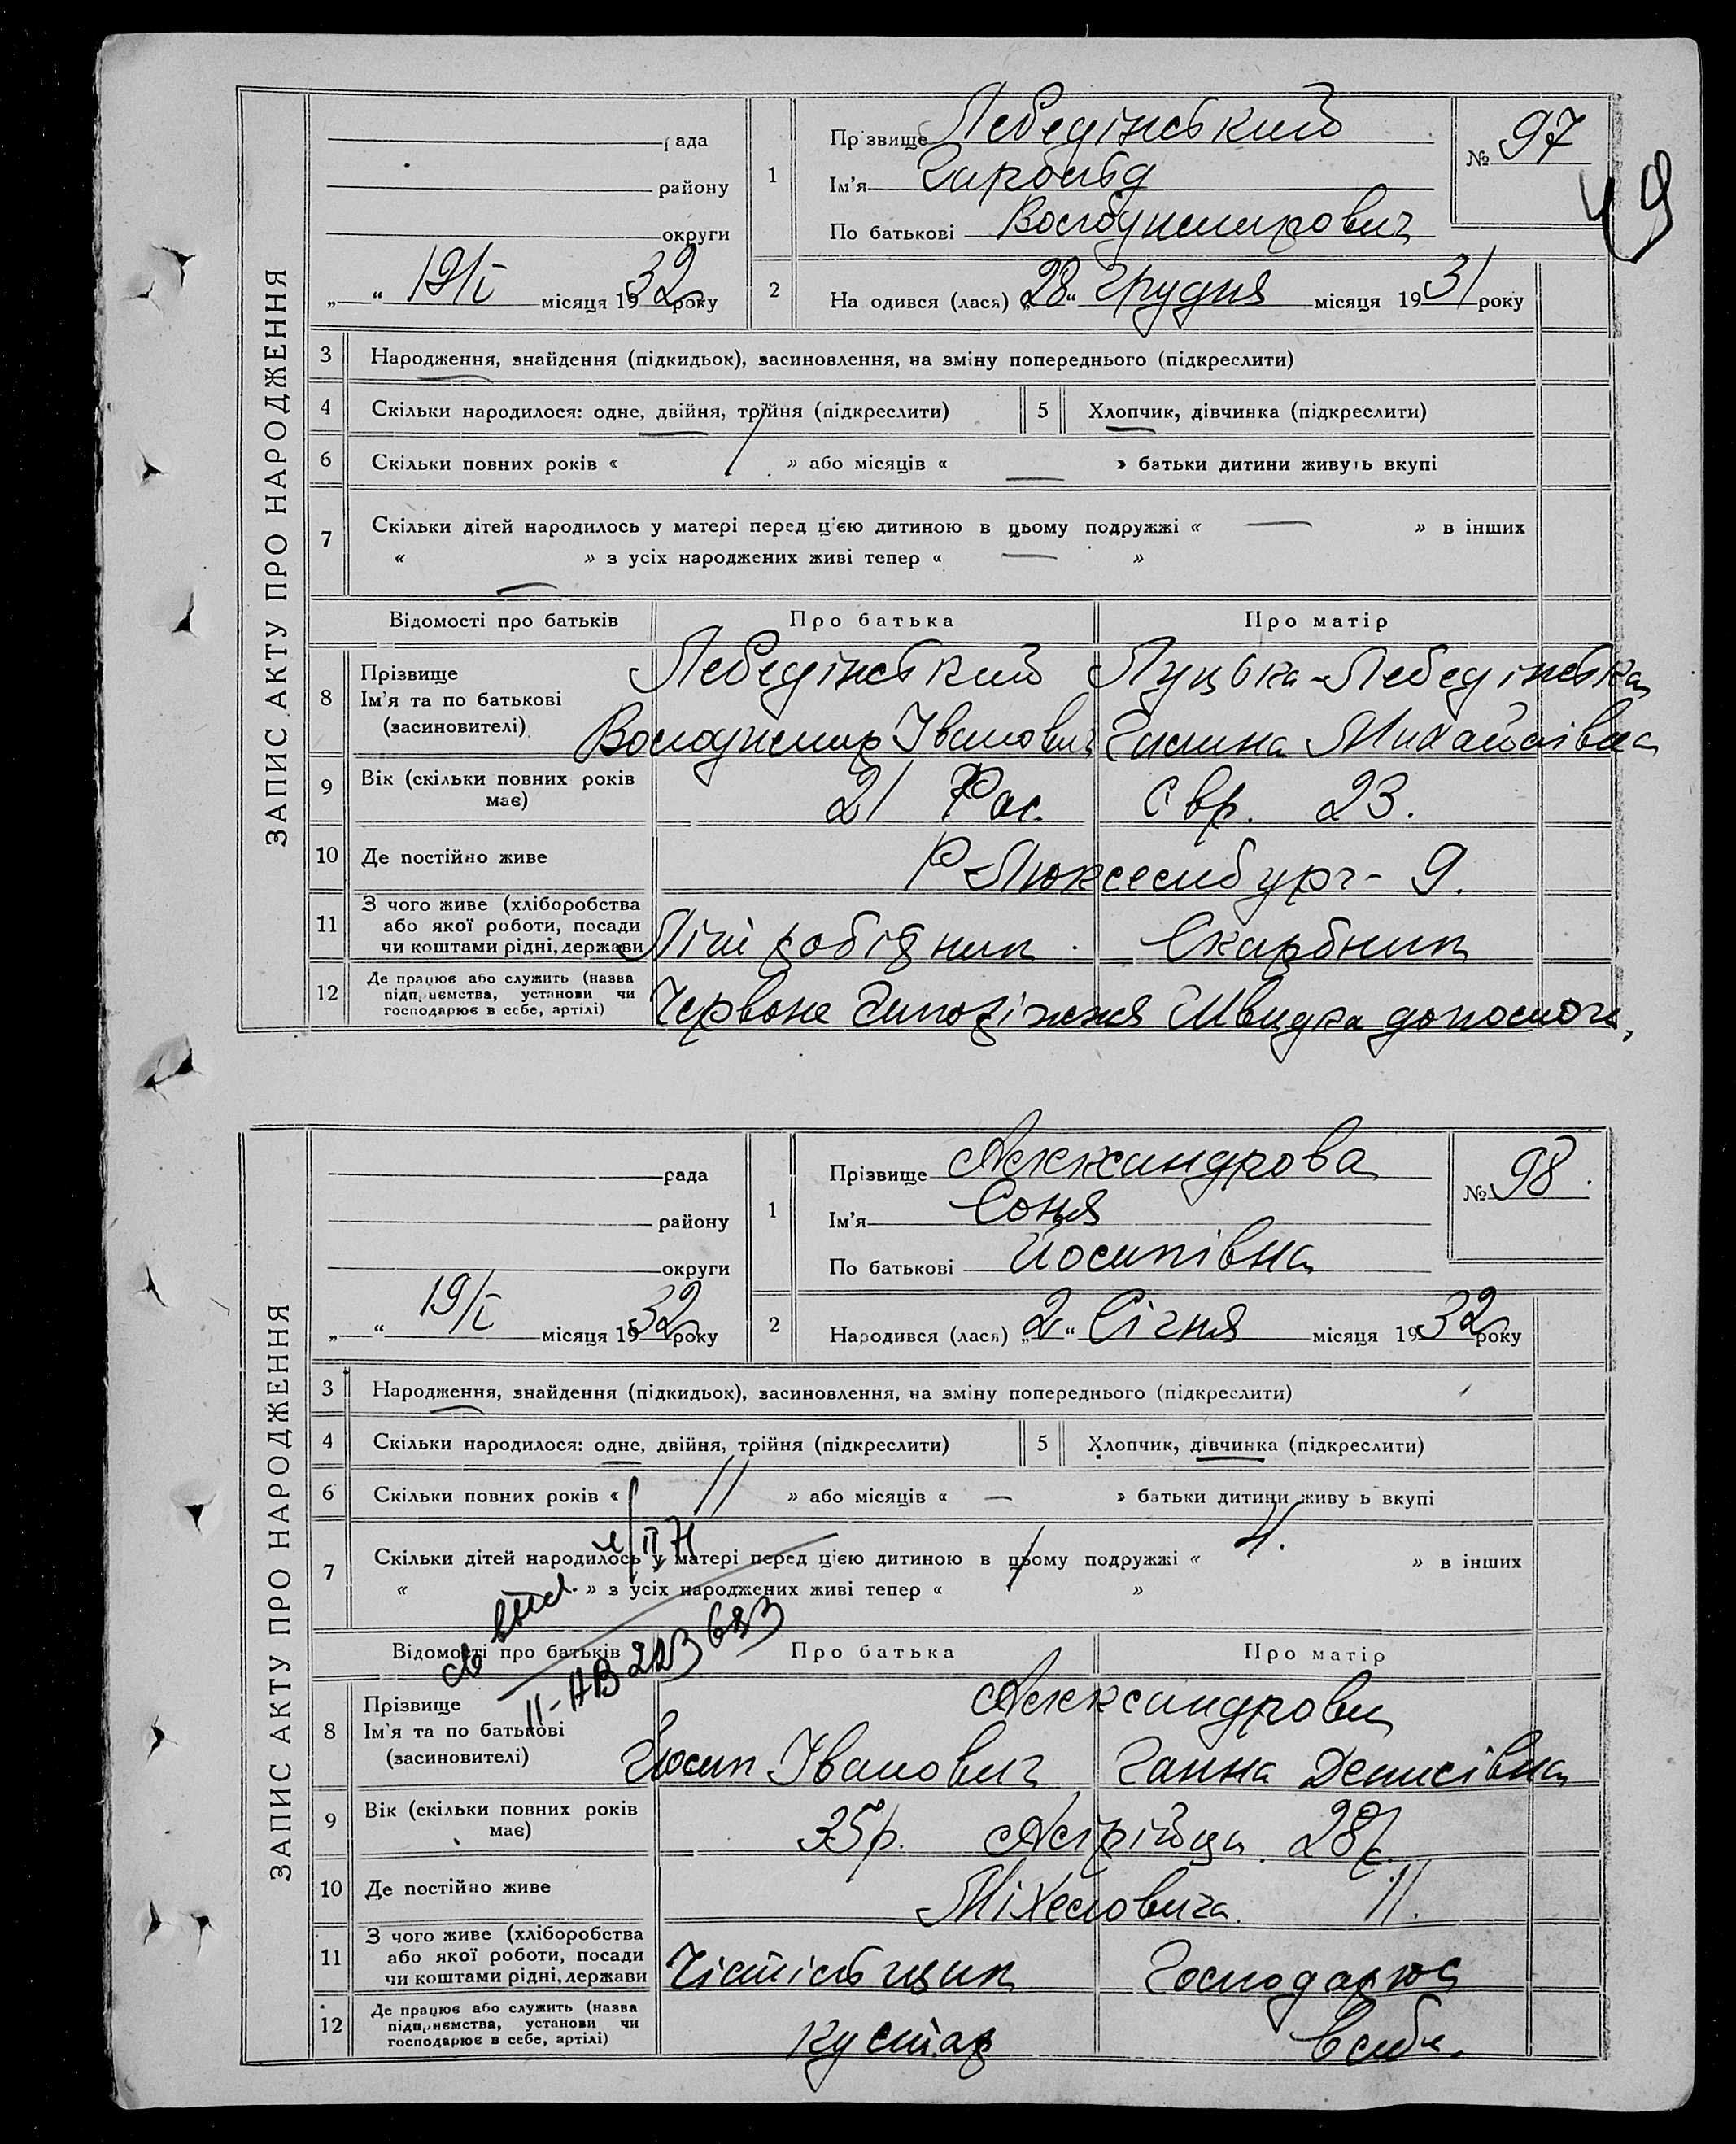 ЗАПИС АКТУ ПРО НАРОДЖЕННЯ
рада
району
округи
„ “ 19/I місяця 1932 року
1 Прізвище Лебедінський
Ім'я Гарольд
По батькові Володимирович
№ 97
49
2 На одився (лася) „28“ Грудня місяця 1931 року
3 Народження, знайдення (підкидьок), засиновлення, на зміну попереднього (підкреслити)
4 Скільки народилося: одне, двійня, трійня (підкреслити) 5 Хлопчик, дівчинка (підкреслити)
6 Скільки повних років « 1 » або місяців « — » батьки дитини живуть вкупі
7 Скільки дітей народилось у матері перед цією дитиною в цьому подружжі « — » в інших
« — » з усіх народжених живі тепер « — »
Відомості про батьків Про батька Про матір
8 Прізвище Ім'я та по батькові (засиновителі) Лебедінський Луцька-Лебедінська
Володимир Іванович Галина Михайлівна
9 Вік (скільки повних років має) 21 Рос. Євр. 23.
10 Де постійно живе Р. Люксембург - 9.
11 З чого живе (хліборобства або якої роботи, посади чи коштами рідні, держави Літ робідник Скарбник
12 Де працює або служить (назва підприємства, установи чи господарює в себе, артілі) Червоне Запоріжжя Швидка допомога,
ЗАПИС АКТУ ПРО НАРОДЖЕННЯ
рада
району
округи
„ “ 19/I місяця 1932 року
1 Прізвище Александрова
Ім'я Соня
По батькові Йосипівна
№ 98.
2 Народився (лася) „2“ Січня місяця 1932 року
3 Народження, знайдення (підкидьок), засиновлення, на зміну попереднього (підкреслити)
4 Скільки народилося: одне, двійня, трійня (підкреслити) 5 Хлопчик, дівчинка (підкреслити)
6 Скільки повних років « 11 » або місяців « — » батьки дитини живу ь вкупі
7 Скільки дітей народилось у матері перед цією дитиною в цьому подружжі « 4. » в інших
« » з усіх народжених живі тепер « »
II-АВ
Відомості про батьків Про батька Про матір
8 Прізвище Ім'я та по батькові (засиновителі) Александрови
Йосип Іванович Ганна Денисівна
9 Вік (скільки повних років має) 35 р. Асірійци. 28 р.
10 Де постійно живе Міхеловича. 11.
11 З чого живе (хліборобства або якої роботи, посади чи коштами рідні, держави Чістільщик Господарює
12 Де працює або служить (назва підприємства, установи чи господарює в себе, артілі) кустар в себе.